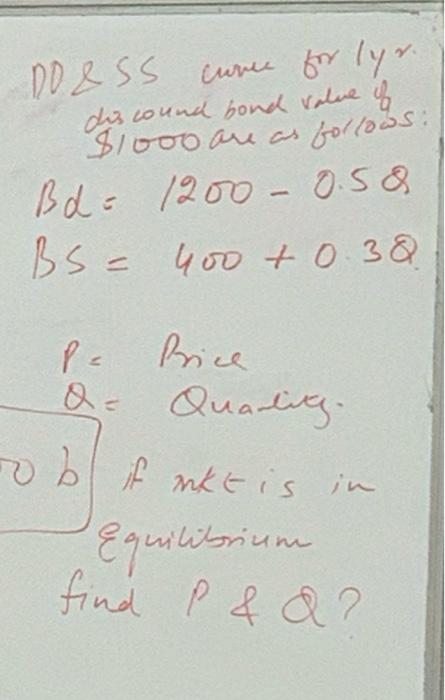 DD & SS curve for 1yr.
discound bond value of
$1000 are as follows:
Bd = 1200 - 0.5Q
BS = 400 + 0.3Q
P = Price
Q = Quantity.
b if mkt is in
Equilibrium
find P & Q?